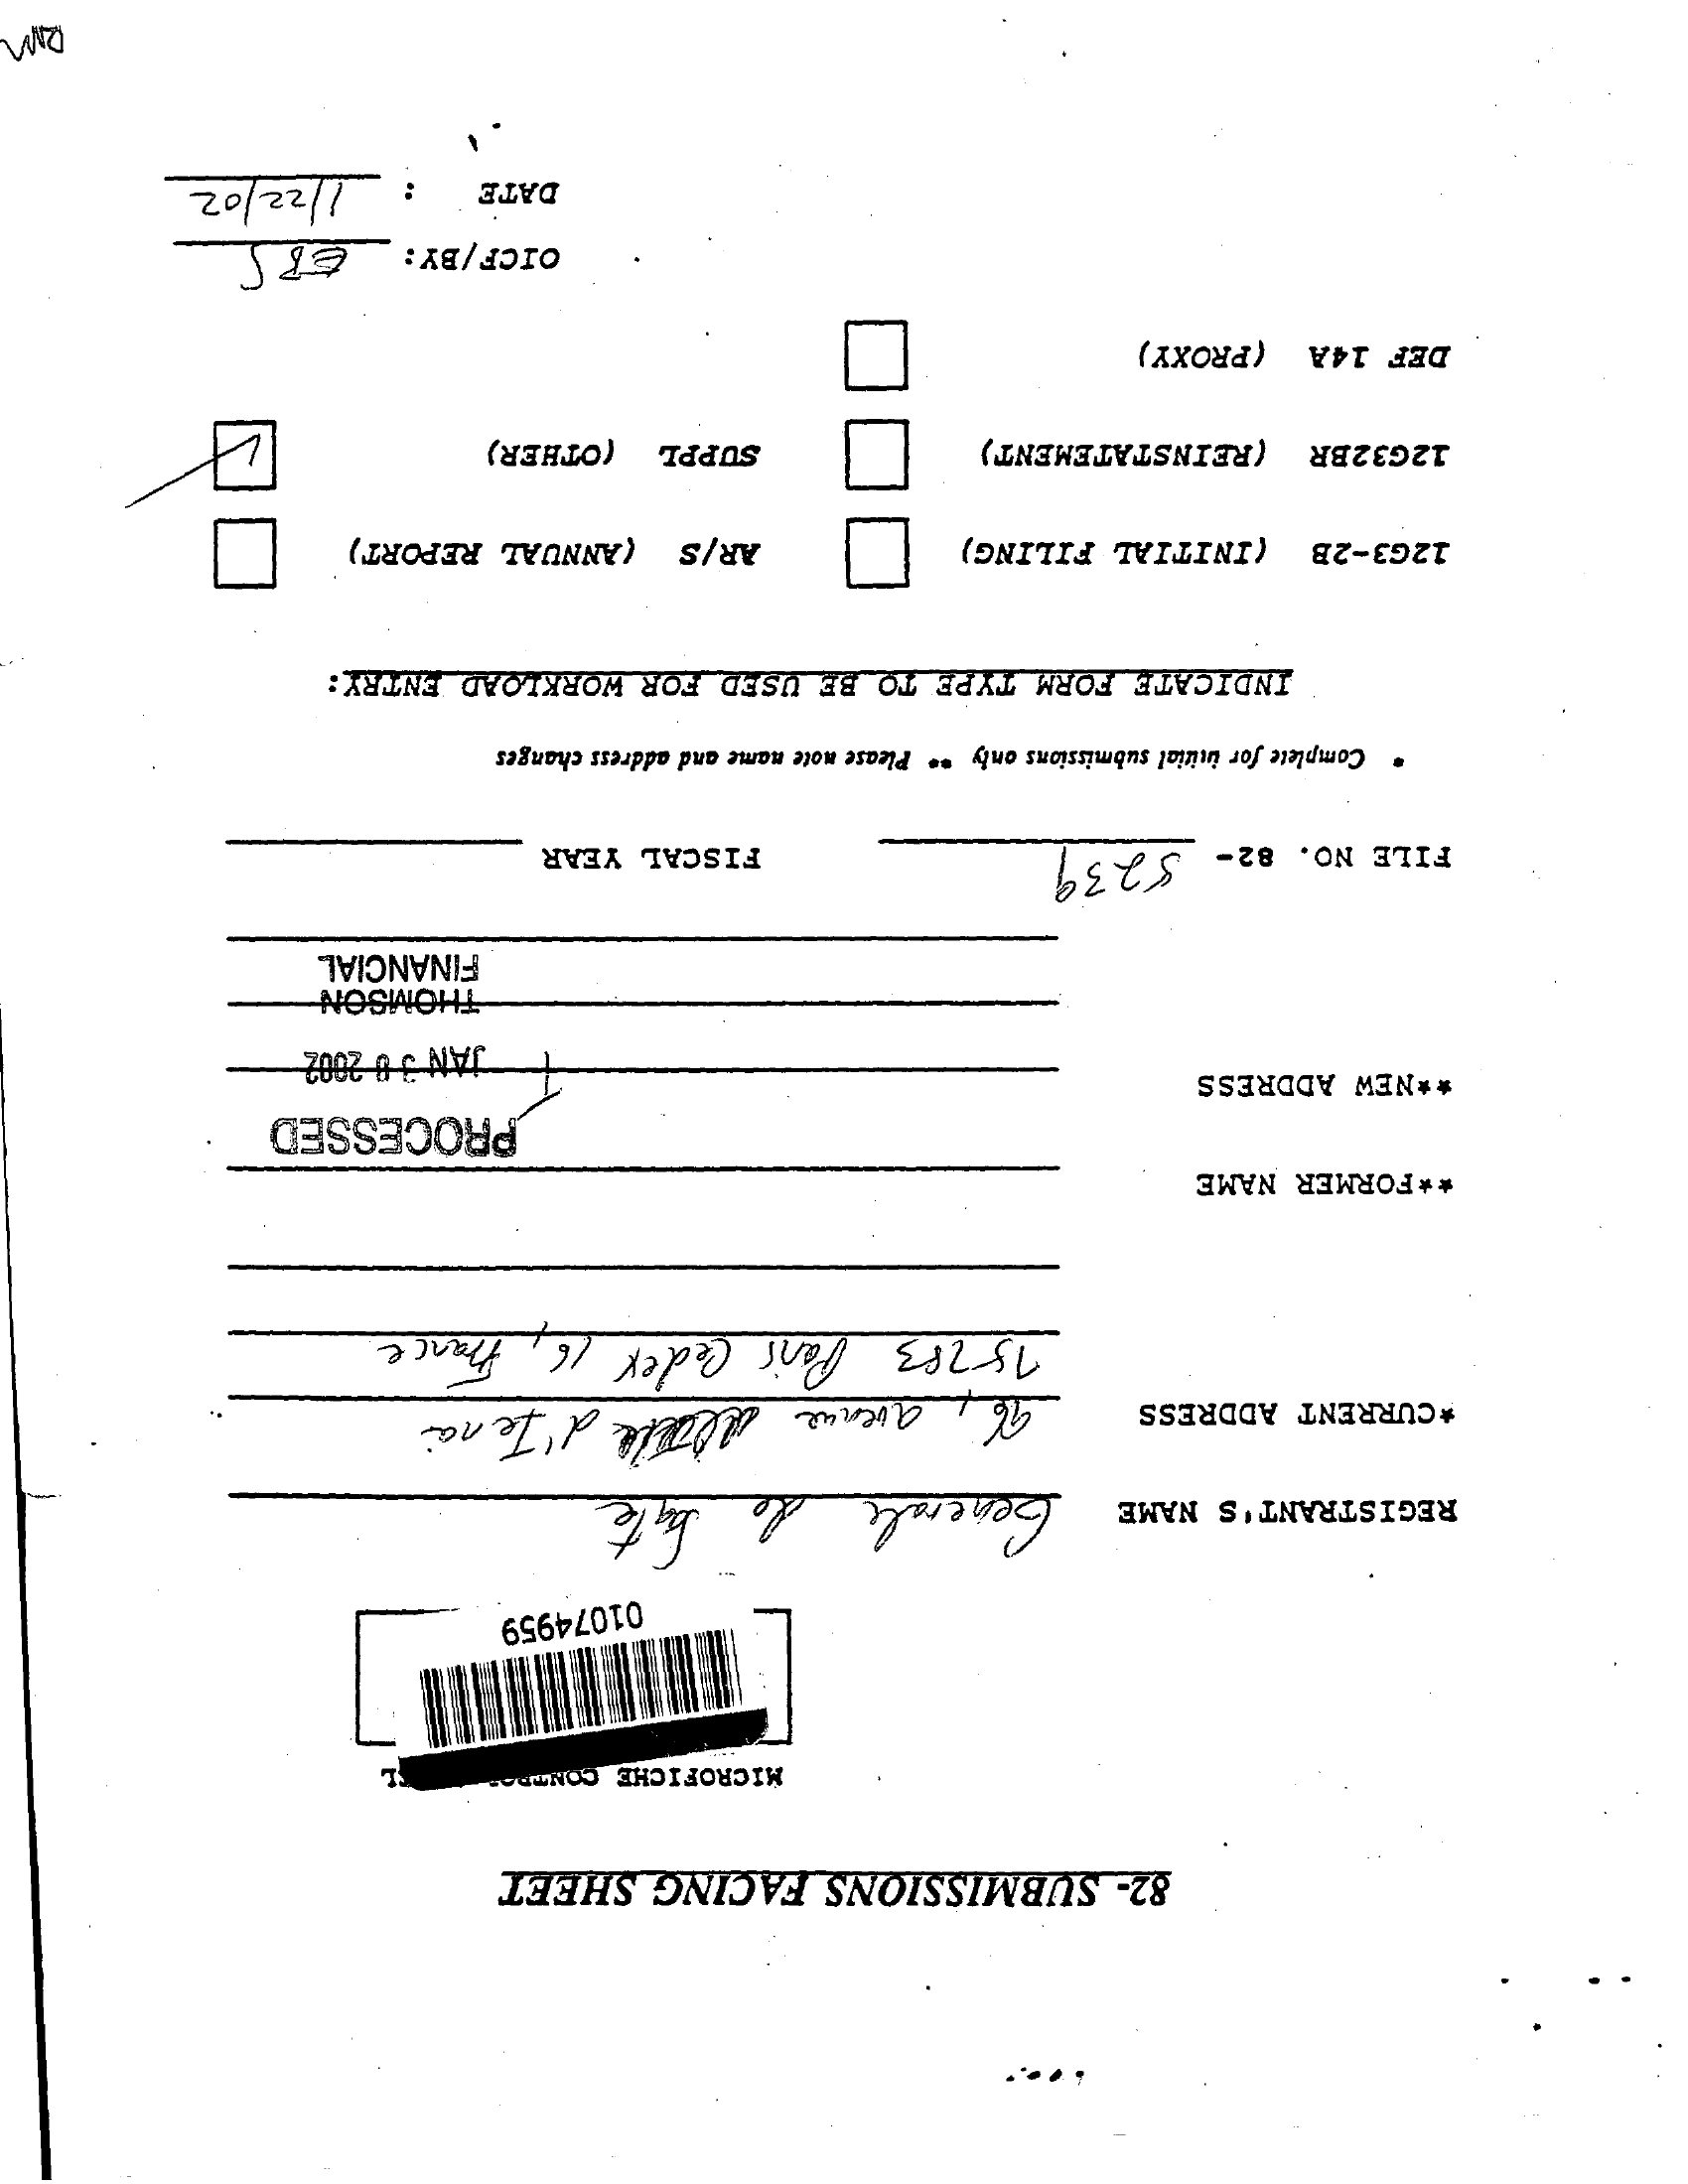 82- SUBMISSIONS FACING SHEET
MICROFICHE CONTROL
01074959
REGISTRANT'S NAME Generale de Sante
*CURRENT ADDRESS 96, avenue d'Iena
75783 Paris Cedex 16, France
**FORMER NAME
PROCESSED
**NEW ADDRESS
JAN 30 2002
THOMSON
FINANCIAL
FILE NO. 82- 5239 FISCAL YEAR
* Complete for initial submissions only ** Please note name and address changes
INDICATE FORM TYPE TO BE USED FOR WORKLOAD ENTRY:
12G3-2B (INITIAL FILING) AR/S (ANNUAL REPORT)
12G32BR (REINSTATEMENT) SUPPL (OTHER)
DEF 14A (PROXY)
OICF/BY: EBS
DATE : 1/22/02